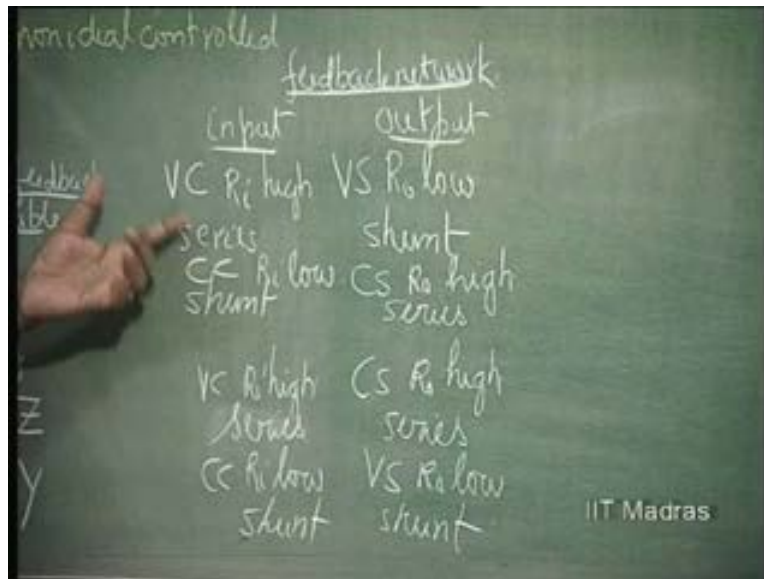 nonideal controlled
feedback network
input output
VC Ri high VS Ro low
series shunt
CC Ri low CS Ro high
shunt series
VC Ri high CS Ro high
series series
Z
CC Ri low VS Ro low
Y
shunt shunt
IIT Madras